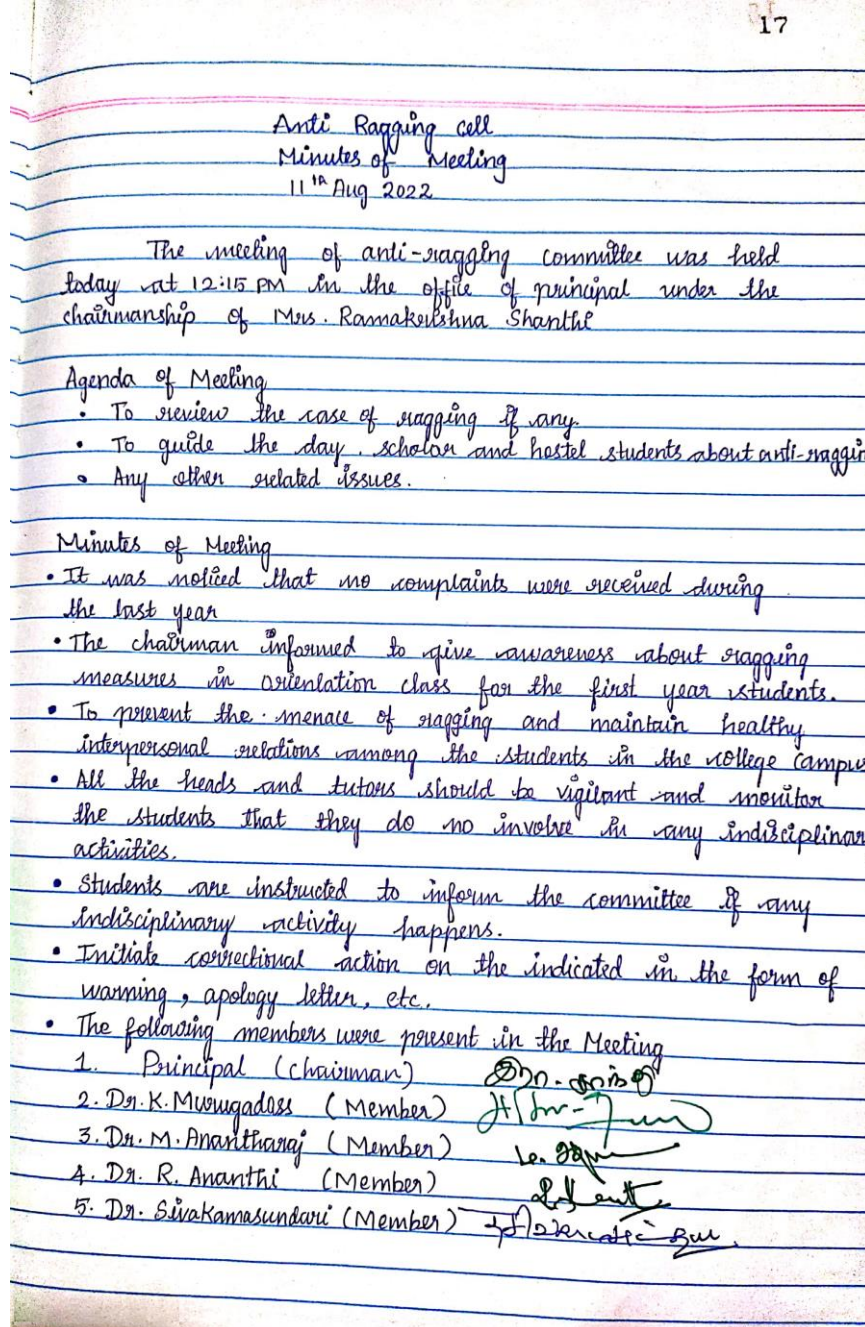 17
Anti Ragging cell
Minutes of Meeting
11th Aug 2022
The meeting of anti-ragging committee was held
today at 12:15 PM in the office of principal under the
chairmanship of Mrs. Ramakrishna Shanthi
Agenda of Meeting
• To review the case of ragging if any.
• To guide the day. scholar and hostel students about anti-raggin
• Any other related issues.
Minutes of Meeting
• It was noticed that no complaints were received during
the last year
• The chairman informed to give awareness about ragging
measures in orientation class for the first year students.
• To prevent the menace of ragging and maintain healthy
interpersonal relations among the students in the college campus
• All the heads and tutors should be vigilant and monitor
the students that they do no involve in any indisciplinar
activities.
• Students are instructed to inform the committee if any
indisciplinary activity happens.
• Initiate correctional action on the indicated in the form of
warning, apology letter, etc.
• The following members were present in the Meeting
1. Principal (Chairman)
2. Dr. K. Murugadoss (Member)
3. Dr. M. Anantharaj (Member)
4. Dr. R. Ananthi (Member)
5. Dr. Sivakamasundari (Member)